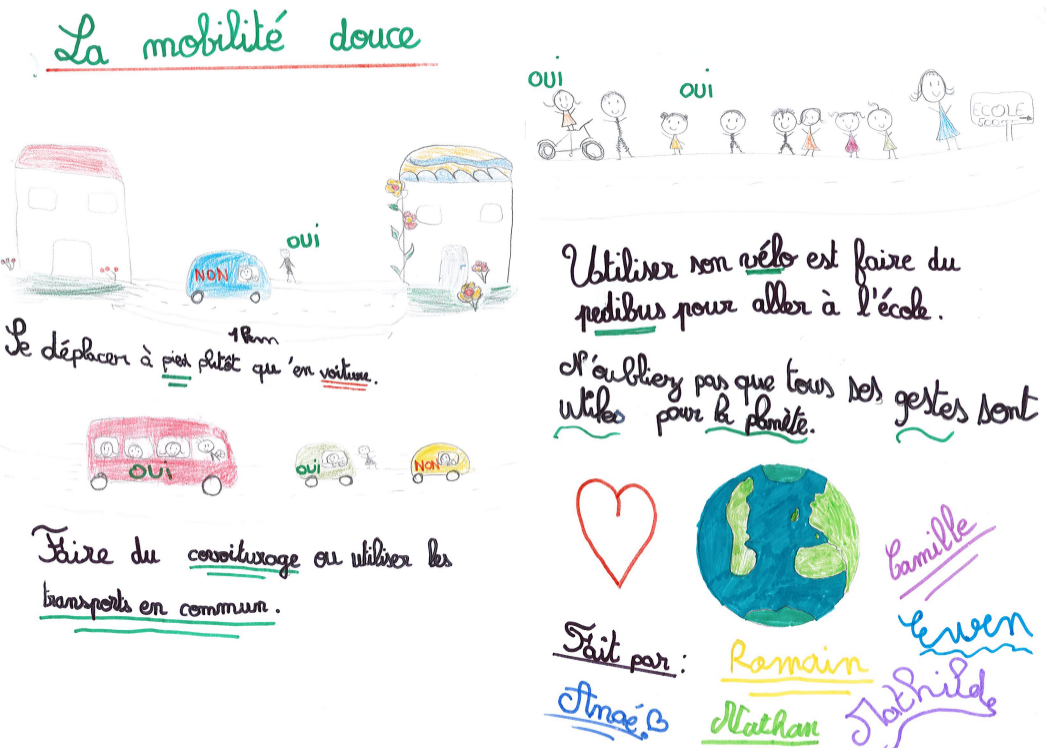 La mobilité douce
NON
OUI
1 km
Se déplacer à pied plutôt qu'en voiture.
OUI
OUI
NON
Faire du covoiturage ou utiliser les
transports en commun.
OUI
OUI
ECOLE
500m
Utiliser son vélo est faire du
pedibus pour aller à l'école.
N'oubliez pas que tous ses gestes sont
utiles pour la planète.
Fait par :
Camille
Ewen
Romain
Anaé
Nathan
Mathilde